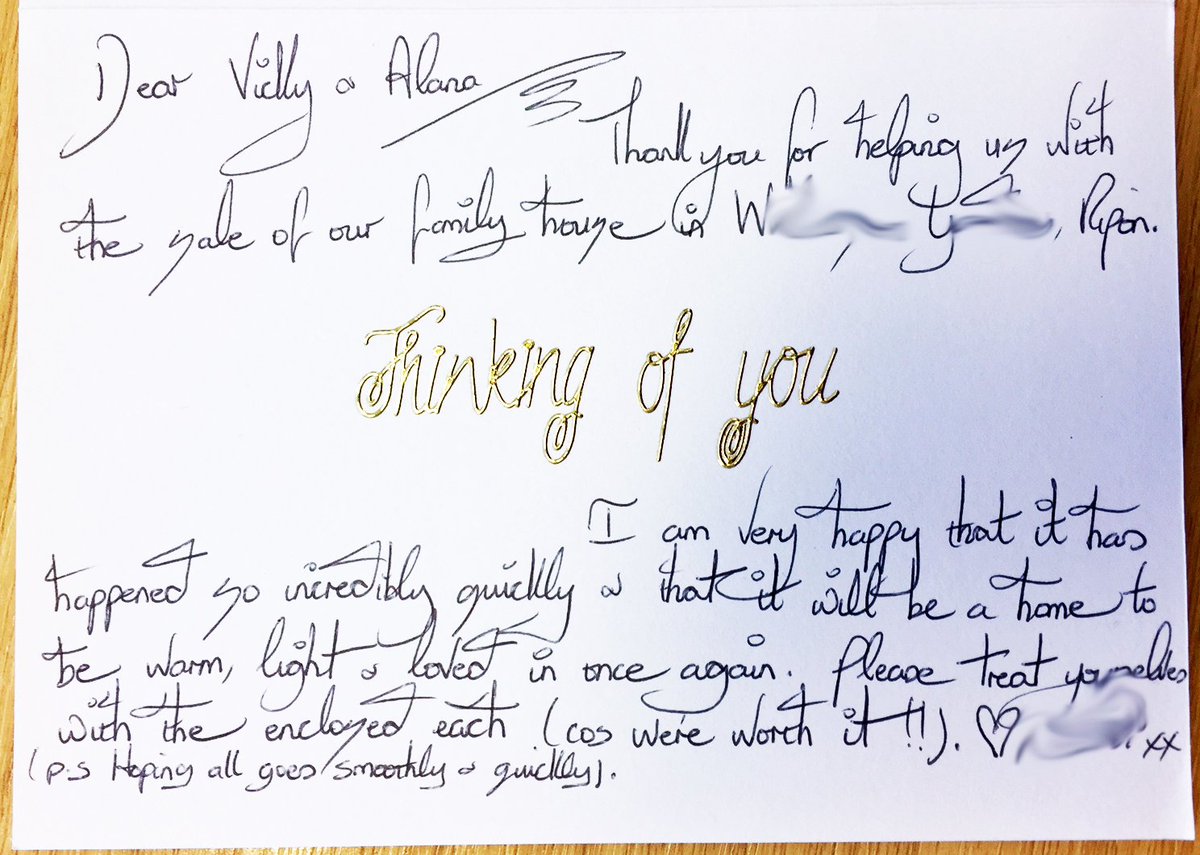 Dear Vicky & Alana
Thank you for helping us with
the sale of our family house in W Y, Ripon.
Thinking of you
I am very happy that it has
happened so incredibly quickly & that it will be a home to
be warm, light & loved in once again. Please treat yourselves
with the enclosed each (cos we're worth it!!). ♡ xx
(p.s Hoping all goes smoothly & quickly).